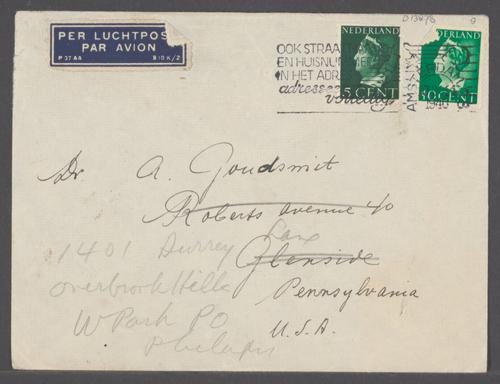 PER LUCHTPOS
PAR AVION
P 37 AA
OOK STRAA
EN HUISNU
IN HET ADR
adressee
volledig
NEDERLAND
5 CENT
NEDERLAND
50 CENT
AMS
1940
Dr A. Goudsmit
Roberts avenue 40
Glenside
Pennsylvania
U.S.A.
1401 Surrey Lane
Overbrook Hills
W Park PO